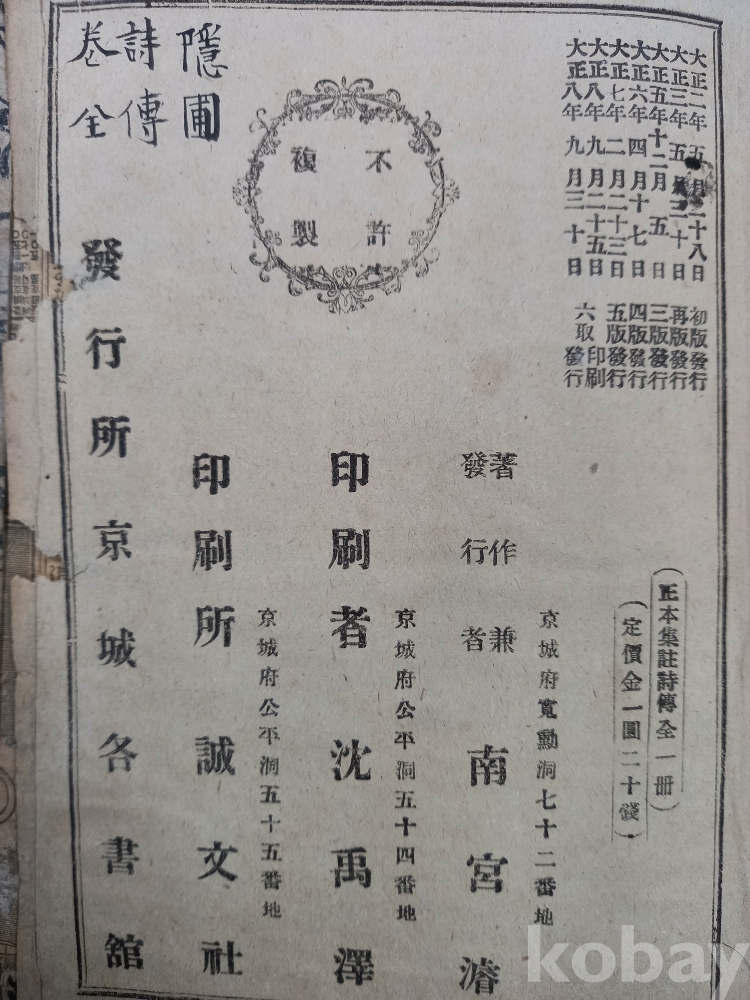 大正二年五月二十八日 初版發行
大正三年五月三十日 再版發行
大正五年十二月五日 三版發行
大正六年四月十七日 四版發行
大正七年二月二十三日 五版發行
大正八年九月二十五日 印刷
大正八年九月三十日 六取發行
(正本集註詩傳全一冊)
(定價金一圓二十錢)
不許
複製
京城府寬勳洞七十二番地
著作兼
發行者
南宮濬
京城府公平洞五十四番地
印刷者 沈禹澤
京城府公平洞五十五番地
印刷所 誠文社
發行所 京城各書舘
隱圃
詩傳
卷全
kobay